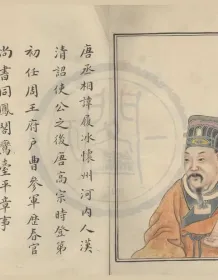 唐丞相諱履冰懷州河內人漢
清詔使公之後唐高宗時登第
初任周王府戶曹參軍歷春官
尚書同鳳閣鸞臺平章事